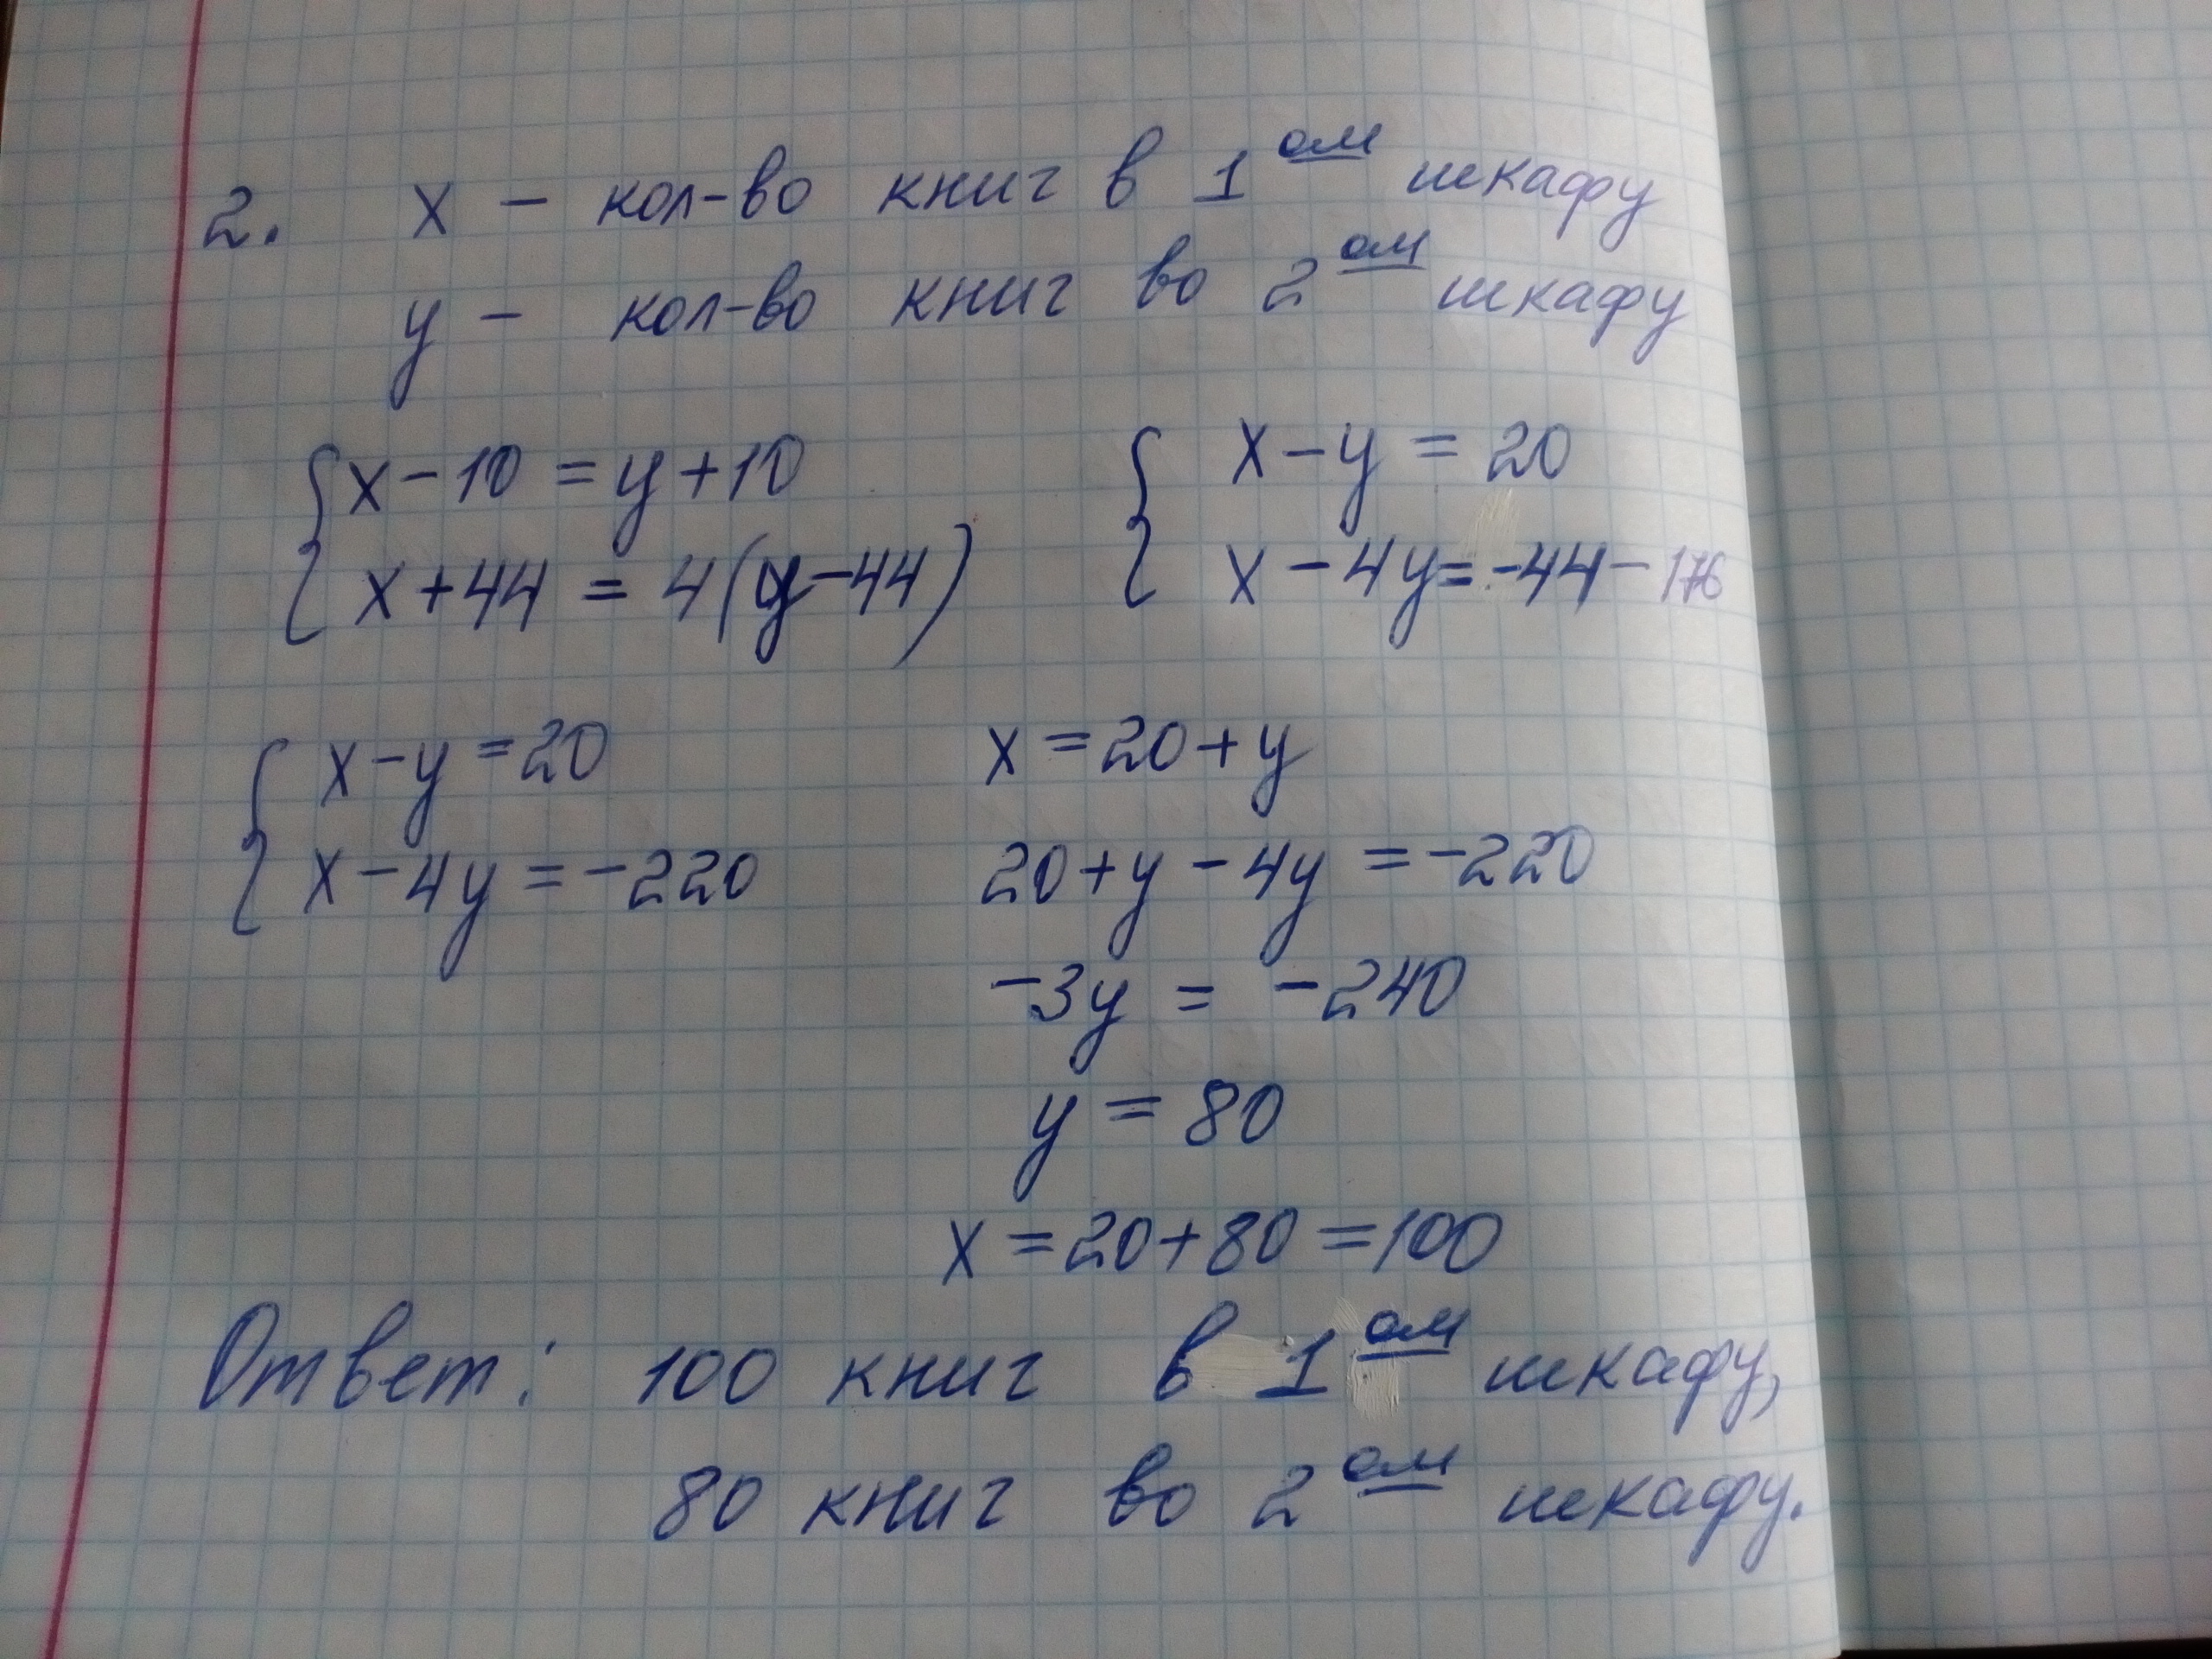 2. x - кол-во книг в 1ом шкафу
y - кол-во книг во 2ом шкафу
{ x - 10 = y + 10
x + 44 = 4(y - 44)
{ x - y = 20
x - 4y = -44 - 176
{ x - y = 20
x - 4y = -220
x = 20 + y
20 + y - 4y = -220
-3y = -240
y = 80
x = 20 + 80 = 100
Ответ: 100 книг в 1ом шкафу,
80 книг во 2ом шкафу.